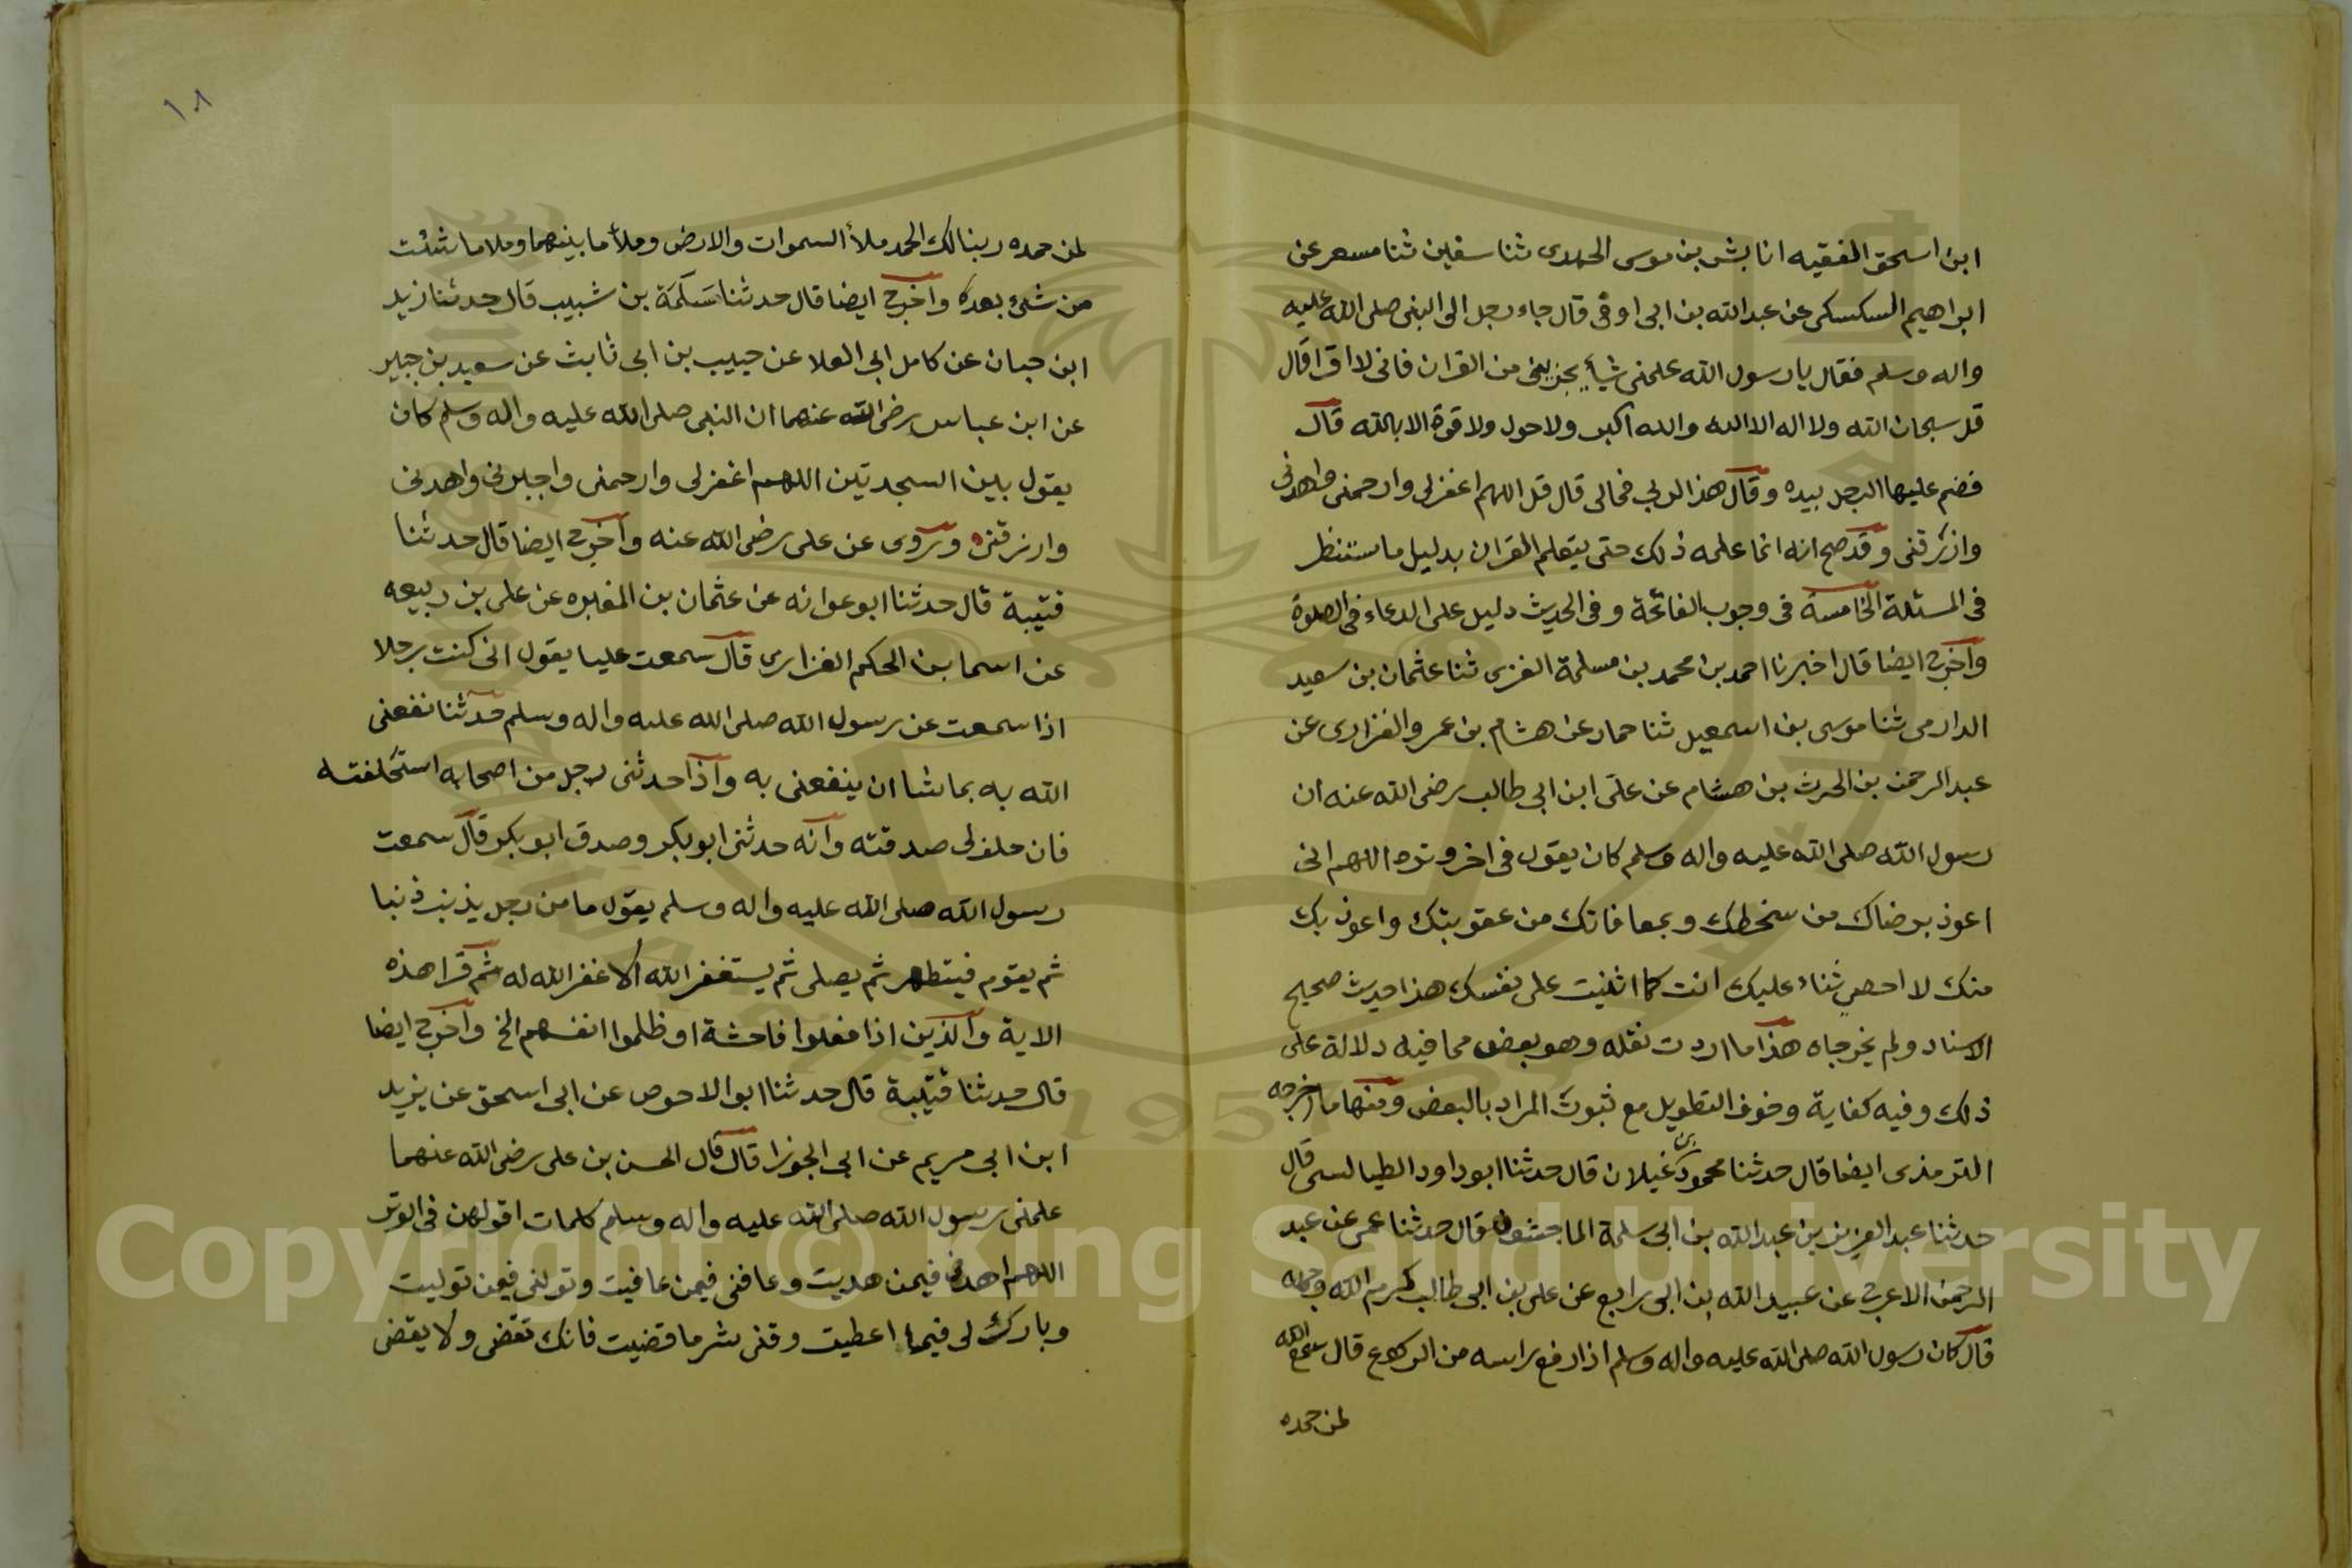 ابن اسحق الفقيه انا بشر بن موسى الحميدى ثنا سفين ثنا مسعر عن
ابراهيم السكسكى عن عبد الله بن ابى اوفى قال جاء رجل الى النبى صلى الله عليه
واله وسلم فقال يا رسول الله علمنى شيأ يجزينى من القران فانى لا اقرا قال
قل سبحان الله ولا اله الا الله والله اكبر ولا حول ولا قوة الا بالله قال
فضم عليها الرجل بيده وقال هذا لربى فمالى قال قل اللهم اغفرلى وارحمنى واهدنى
وارزقنى وقد صح انه انما علمه ذلك حتى يتعلم القران بدليل ما ستنظر
فى المسئلة الخامسة فى وجوب الفاتحة وفى الحديث دليل على الدعاء فى الصلوة
واخرج ايضا قال اخبرنا احمد بن محمد بن مسلمة العنزى ثنا عثمان بن سعيد
الدارمى ثنا موسى بن اسمعيل ثنا حماد عن هشام بن عمرو الفزارى عن
عبد الرحمن بن الحرث بن هشام عن على ابن ابى طالب رضى الله عنه ان
رسول الله صلى الله عليه واله وسلم كان يقول فى اخر وتره اللهم انى
اعوذ برضاك من سخطك وبمعافاتك من عقوبتك واعوذ بك
منك لا احصى ثناء عليك انت كما اثنيت على نفسك هذا حديث صحيح
الاسناد ولم يخرجاه هذا ما اردت نقله وهو بعض مما فيه دلالة على
ذلك وفيه كفاية وخوف التطويل مع ثبوت المراد بالبعض ومنها ما اخرجه
الترمذى ايضا قال حدثنا محمود بن غيلان قال حدثنا ابو داود الطيالسى قال
حدثنا عبد العزيز بن عبد الله بن ابى سلمة الماجشون قال حدثنا عمى عن عبد
الرحمن الاعرج عن عبيد الله بن ابى رابع عن على بن ابى طالب كرم الله وجهه
قال كان رسول الله صلى الله عليه واله وسلم اذا رفع راسه من الركوع قال سمع الله
لمن حمده
١٠٨
لمن حمده ربنا لك الحمد ملأ السموات والارض وملأ ما بينهما وملا ما شئت
من شئ بعده واخرج ايضا قال حدثنا سَلَمَة بن شبيب قال حدثنا زيد
ابن حبان عن كامل ابى العلا عن حبيب بن ابى ثابت عن سعيد بن جبير
عن ابن عباس رضى الله عنهما ان النبى صلى الله عليه واله وسلم كان
يقول بين السجدتين اللهم اغفرلى وارحمنى واجبرنى واهدنى
وارزقنى وروى عن على رضى الله عنه واخرج ايضا قال حدثنا
قتيبة قال حدثنا ابو عوانه عن عثمان بن المغيره عن على بن ربيعه
عن اسما بن الحكم الفزارى قال سمعت عليا يقول انى كنت رجلا
اذا سمعت عن رسول الله صلى الله عليه واله وسلم حدثنا نفعنى
الله به بما شا ان ينفعنى به واذا حدثنى رجل من اصحابه استحلفته
فان حلف لى صدقته وانه حدثنى ابو بكر وصدق ابو بكر قال سمعت
رسول الله صلى الله عليه واله وسلم يقول ما من رجل يذنب ذنبا
ثم يقوم فيتطهر ثم يصلى ثم يستغفر الله الا غفر الله له ثم قرا هذه
الاية والذين اذا فعلوا فاحشة او ظلموا انفسهم الخ واخرج ايضا
قال حدثنا قتيبة قال حدثنا ابو الاحوص عن ابى اسحق عن يزيد
ابن ابى مريم عن ابى الجوزا قال قال الحسن بن على رضى الله عنهما
علمنى رسول الله صلى الله عليه واله وسلم كلمات اقولهن فى الوتر
اللهم اهدنى فيمن هديت وعافنى فيمن عافيت وتولنى فيمن توليت
وبارك لى فيما اعطيت وقنى شر ما قضيت فانك تقضى ولا يقضى
Copyright © King Saud University
1957